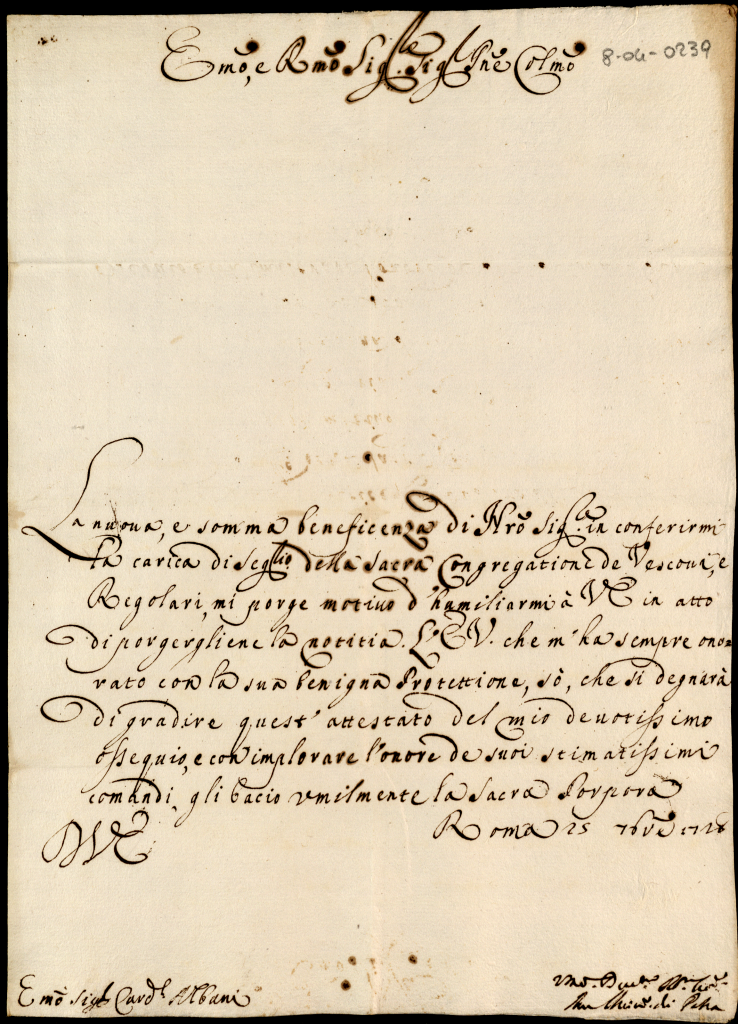 Emo, e Rmo Sig.re Sig.re Pne Colmo
8-04-0239
La nuova, e somma beneficenza di Nro Sig.re in conferirmi
la carica di Seg.rio della Sacra Congregatione de Vescovi, e
Regolari, mi porge motivo d'humiliarmi à VE in atto
di porgergliene la notitia. L'E.V. che m'ha sempre ono=
rato con la sua benigna Protettione, sò, che si degnarà
di gradire quest'attestato del mio devotissimo
ossequio, e con implorare l'onore de suoi stimatissimi
comandi, gli bacio umilmente la Sacra Porpora
Roma 25 7bre
DVE
Emo Sig.r Card.l Albani
di Petra